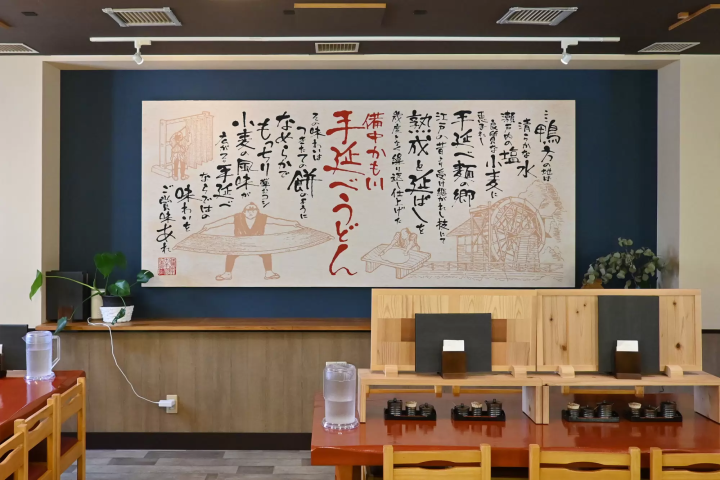 ここ鴨方の地は
清らかな水
瀬戸内の塩
良質な小麦に
恵まれし
手延べ麺の郷
江戸の昔より受け継がれし技にて
熟成と延ばしを
幾度となく繰り返し仕上げた
備中かも川
手延べうどん
その味わいは
つきたての餅のように
なめらかで
もっちり コシ
小麦の風味が
広がる手延べ
ならではの
味わいを
ご賞味あれ